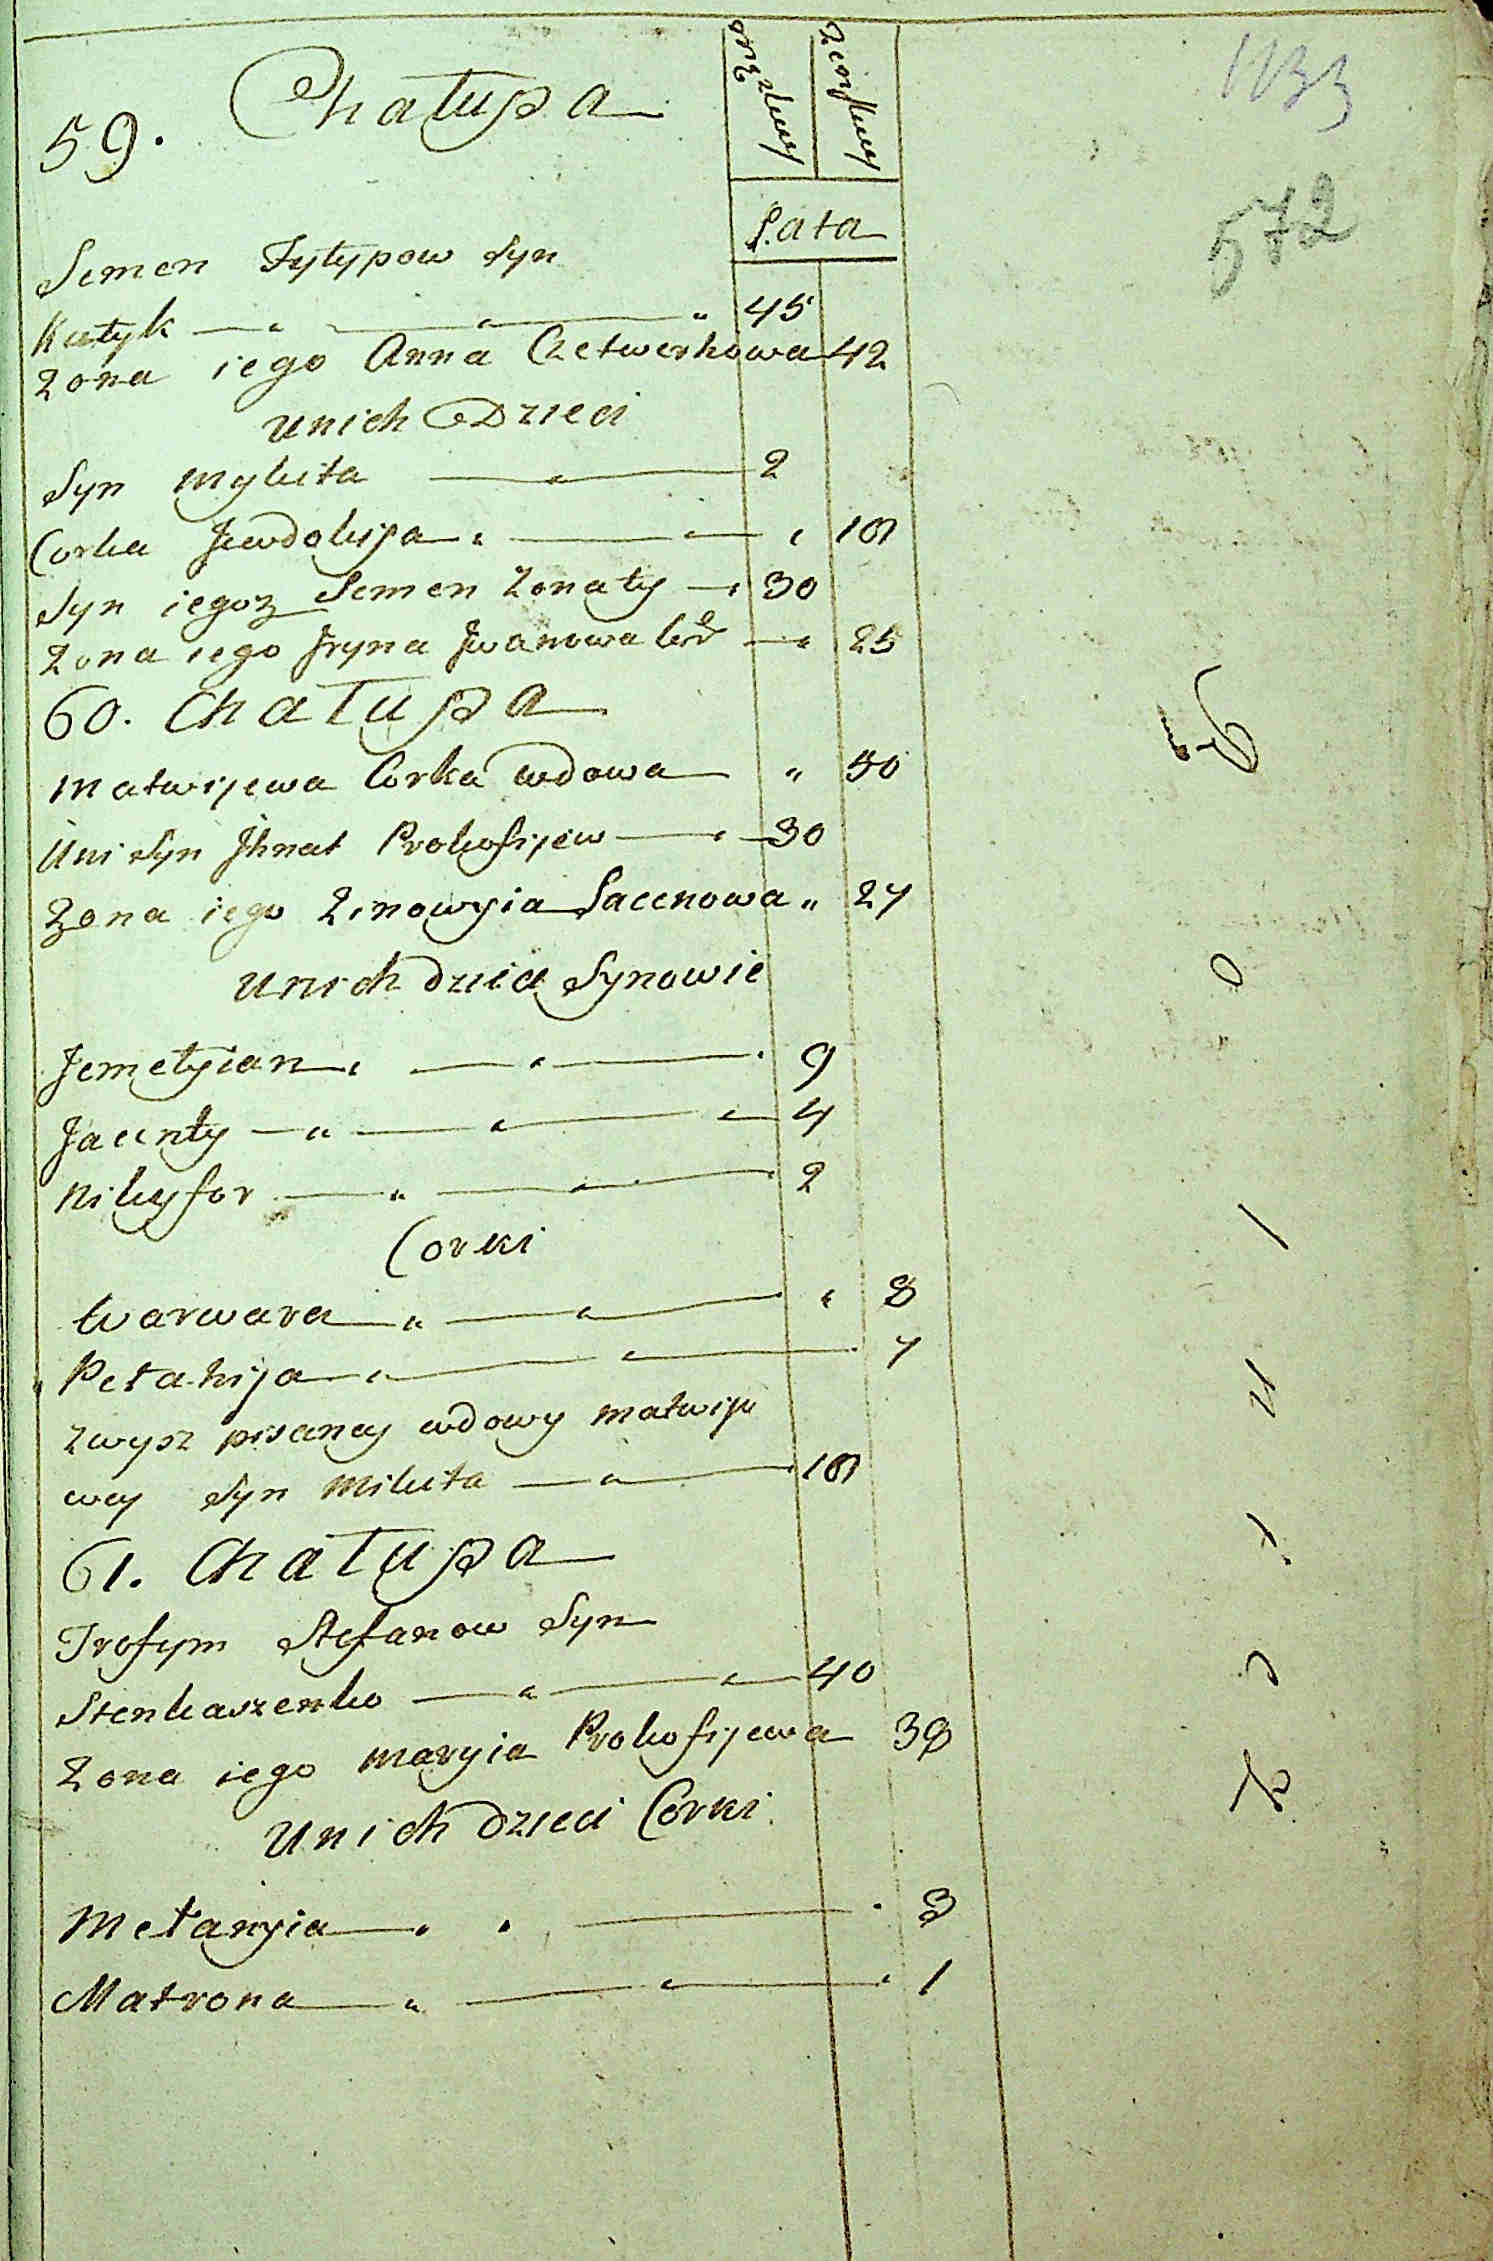 59. Chałupa
męzkey
żeńskey
Lata
1133
572
Semen Fyłypow Syn
Kułyk 45
Zona iego Anna Czetwerkowa 42
unich Dzieci
Syn Mykita 2
Corka Jewdokija 10
Syn iegoz Semen Zonaty 30
Zona iego Jryna Jwanowa 25
60. Chałupa
Matwijewa Corka wdowa 50
Uni Syn Jhnat Prokofijew 30
Zona iego Zinowyia 27
Unich dzieci Synowie
Jemełyian 9
Jacenty 4
Nikyfor 2
Corki
Warwara 8
Pełahija 7
zwysz pisaney wdowy Matwije
wey Syn Mikita 10
61. Chałupa
Trofym Stefanow Syn
Stenkaszenko 40
Zona iego Maryia Prokofijewa 38
Unich dzieci Corki
Mełanyia 3
Matrona 1